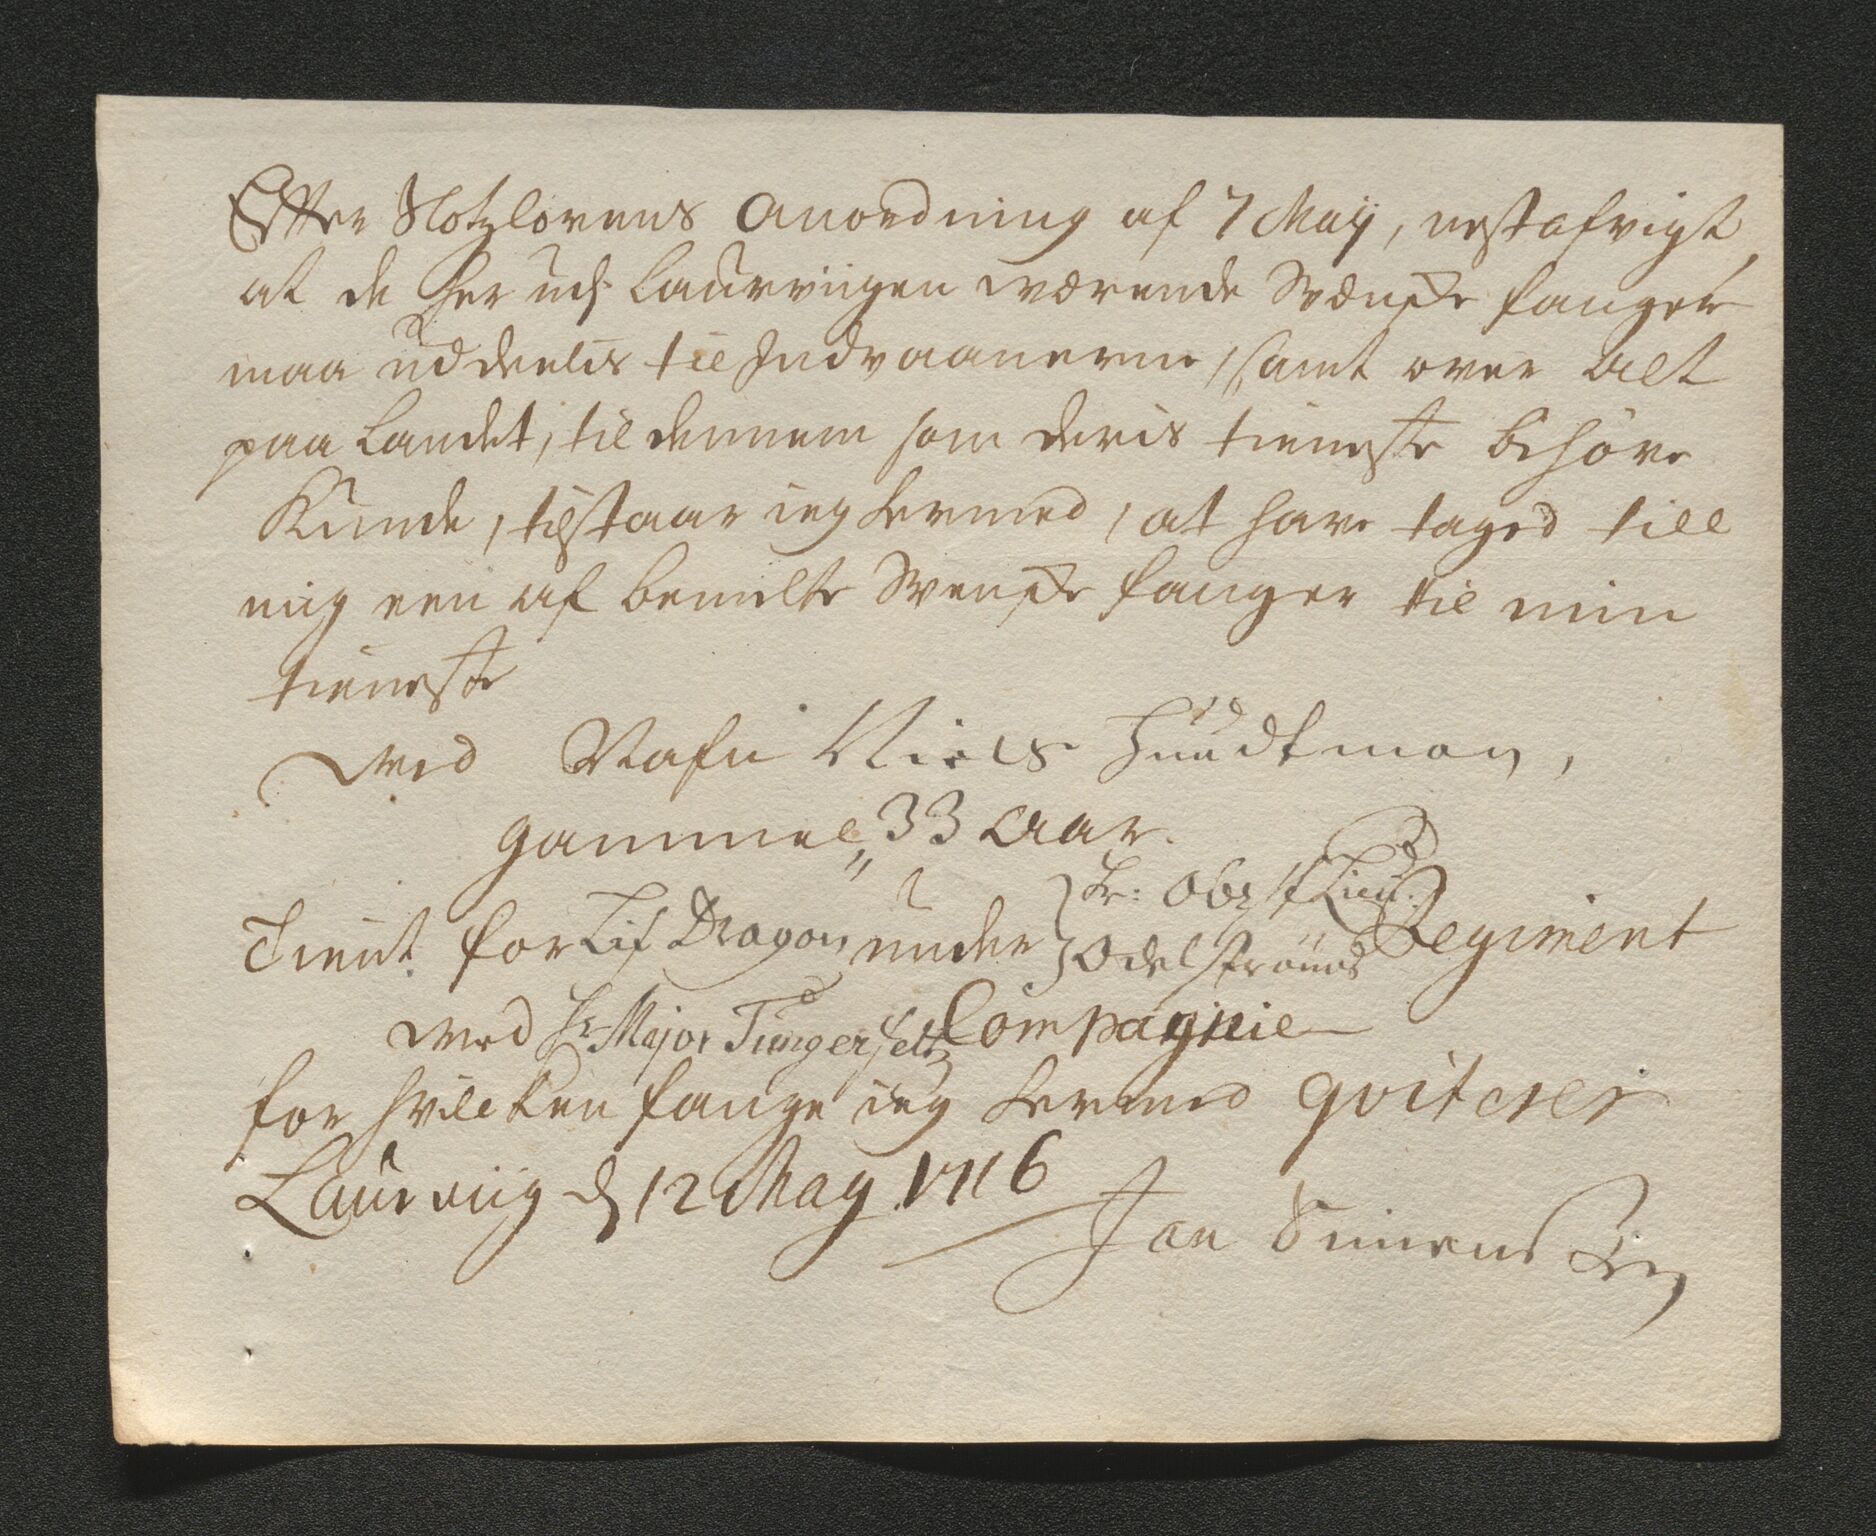 Efter Slotzlovens Anordning af 7 Maij, nest afvigt
at de her udj Laurviigen værende Svænske fanger
maa uddeelis til Indvaanerne, samt over alt
paa Landet, til dennem som deris tieneste behöve
Kunde, tilstaar ieg hermed, at have taged till
mig een af bemelte Svenske fanger til min
tieneste
ved Nafn Niels Hundtman,
gammel 33 Aar.
Tient for Lif Dragon under Hr: Obrist Lieut:
Odelströms Regiment
ved Hr Major Fungerfelt Compagnie
for hvilcken fange ieg hermed qviterer
Laurviig d 12 May 1716
Jan Simens